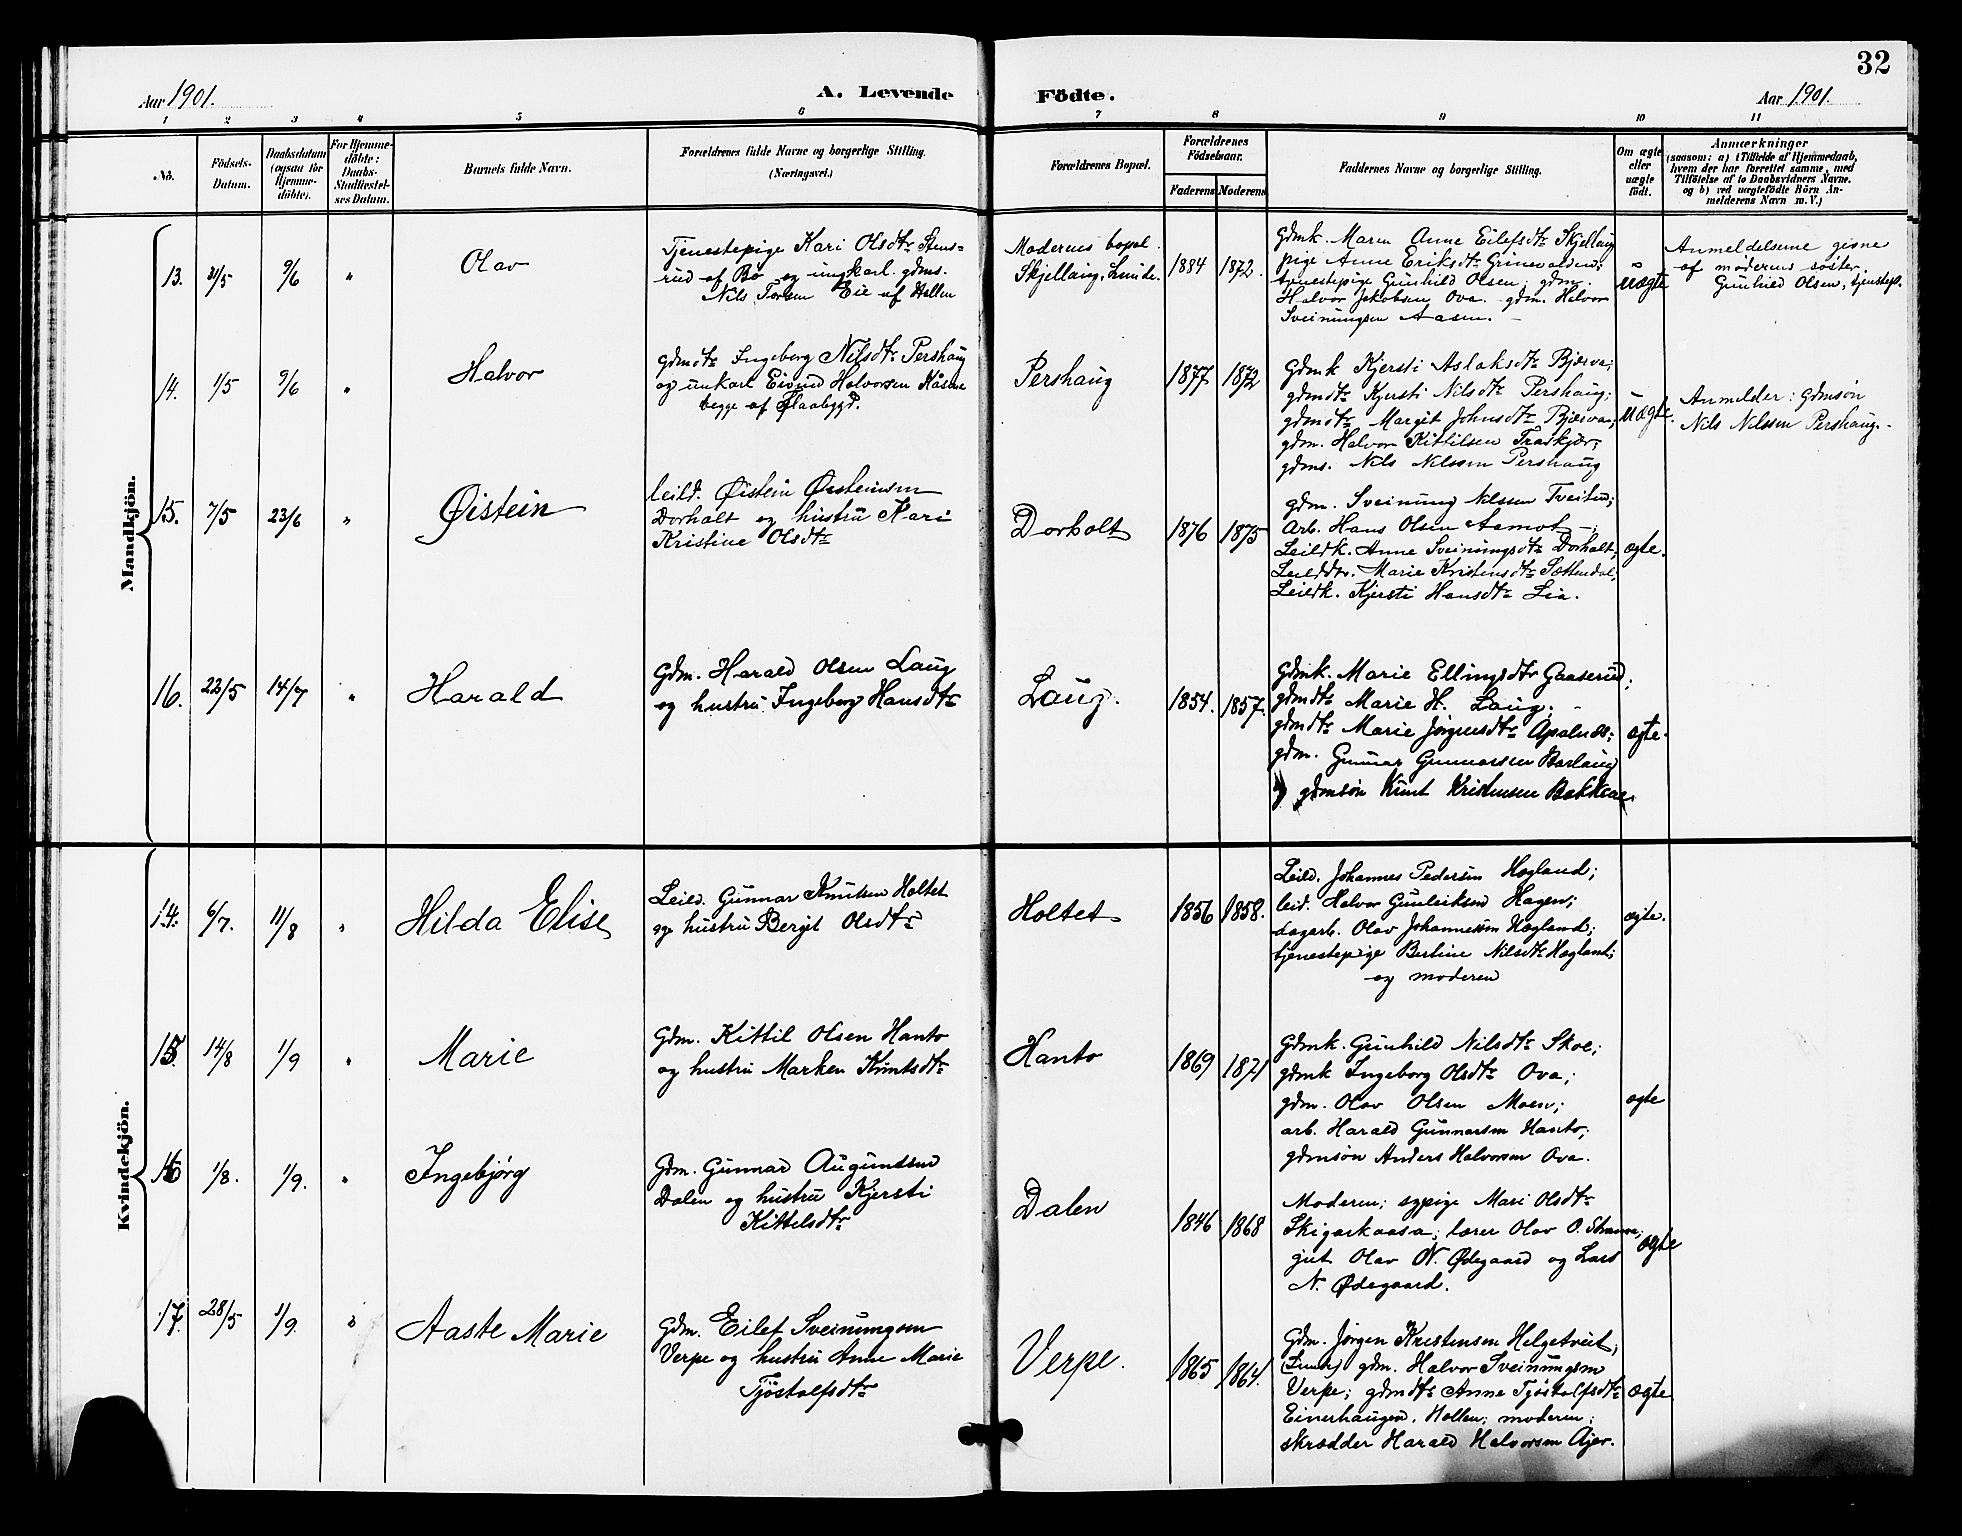 32
Aar 1901.
A. Levende
Födte.
Aar 1901.
1 2 3 4 5 6 7 8 9 10 11
No.
Födsels-
Datum.
Daabsdatum
(ogsaa for
Hjemme-
döbte).
For Hjemme-
döbte:
Daabs-
Stadfæstel-
ses Datum.
Barnets fulde Navn.
Forældrenes fulde Navne og borgerlige Stilling.
(Næringsvei.)
Forældrenes Bopæl.
Forældrenes
Födselsaar.
Faderens Moderens
Faddernes Navne og borgerlige Stilling.
Om ægte
eller
uægte
födt.
Anmærkninger
(saasom: a) i Tilfælde af Hjemmedaab,
hvem der har forrettet samme, med
Tilföielse af to Daabsvidners Navne.
og b) ved uægtefödte Börn An-
melderens Navn m. V.)
Mandkjön.
13. 31/5 9/6 "
Olav
Tjenestepige Kari Olsdtr Stens-
rud af Bø og ungkarl. gdms.
Nils Torsen Eie af Hollen
Moderens bopæl.
Skjellaug, Lunde.
1884 1872.
Gdmk. Maren Anne Eilefsdtr Skjellaug
pige Anne Eriksdtr Grinevalden;
tjenestepige Gunhild Olsen; gdm.
Halvor Jakobsen Ova. gdm. Halvor
Sveinungsen Aasen.
uægte
Anmeldelserne givne
af moderens søster,
Gunhild Olsen, tjenstepi.
14. 1/5 9/6 "
Halvor
gdmdtr Ingeborg Nilsdtr Pershaug
og unkarl Eivind Halvorsen Kåsene
begge af Flaabygd.
Pershaug
1877 1872
Gdmk Kjersti Aslaksdtr Bjærva;
gdmdtr Kjersti Nilsdtr Pershaug;
gdmdtr Margit Johnsdtr Bjærva;
gdm. Halvor Kittilsen Tradkjær;
gdms. Nils Nilssen Pershaug
uægte.
Anmelder: Gdmsøn
Nils Nilssen Pershaug.
15. 7/5 23/6 "
Øistein
leild. Øistein Øisteinsen
Dorholt og hustru Kari
Kristine Olsdtr
Dorholt
1876 1875
gdm. Sveinung Nilssen Tveiten;
Arb. Hans Olsen Aamot;
Leildk. Anne Sveinungsdtr Dorholt;
Leilddtr. Marie Kristensdtr Sættendal;
Leildk. Kjersti Hansdtr Lia.
ægte.
16. 22/5 14/7 "
Harald
Gdm. Harald Olsen Laug
og hustru Ingeborg Hansdtr
Laug.
1854. 1857.
Gdmk. Marie Ellingsdtr Gaaserud;
gdmdtr Marie H. Laug;
gdmdtr Marie Jørgensdtr Apalnes;
gdm. Gunnar Gunnarssen Barlaug
gdmsøn Knut Kristensen Bakkene.
ægte.
Kvindekjön.
14. 6/7. 11/8 "
Hilda Elise
Leild. Gunnar Knutsen Holtet
og hustru Bergit Olsdtr
Holtet
1856 1858.
Leild. Johannes Pedersen Hogland;
leid. Halvor Gunleiksen Hagen;
dagarb. Olav Johannessen Hogland;
tjenestepige Bertine Nilsdtr Hogland;
og moderen
ægte.
15. 14/8 1/9 "
Marie
Gdm. Kittil Olsen Hanto
og hustru Marken Knutsdtr
Hanto
1869 1871
Gdmk. Gunhild Nilsdtr Skoe;
gdmk Ingeborg Olsdtr Ova;
gdm. Olav Olsen Moen;
arb. Harald Gunnarsen Hanto;
gdmsøn Anders Halvorsen Ova.
ægte
16 1/8. 1/9. "
Ingebjørg
Gdm. Gunnar Augundsen
Dalen og hustru Kjersti
Kittelsdtr
Dalen
1846 1868
Moderen; sypige Mari Olsdtr
Skigarkaasa; lærer Olav O. Stranna;
gut Olav N. Ødegaard og Lars
N. Ødegaard.
ægte
17. 28/5 1/9. "
Aaste Marie
Gdm. Eilef Sveinungsen
Verpe og hustru Anne Marie
Tjøstolfsdtr
Verpe.
1865 1864.
Gdm. Jørgen Kristensen Helgetveit,
(Lunde) gdm. Halvor Sveinungsen
Verpe; gdmdtr Anne Tjøstolfsdtr
Einerhaugen, Hollen; moderen;
skrædder Harald Halvorsen Ajer.
ægte